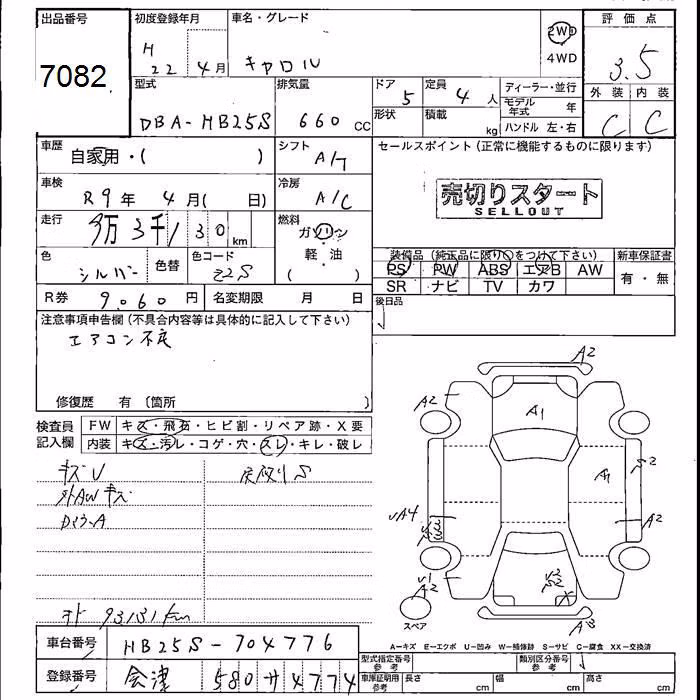 出品番号
7082
初度登録年月
H
22 4月
車名・グレード
キャロル
2WD
4WD
評価点
3.5
外装 内装
C C
型式
DBA-HB25S
排気量
660 CC
ドア
5
定員
4 人
形状
積載
kg
ディーラー・並行
モデル年式 年
ハンドル 左・右
車歴
自家用・( )
シフト
A/T
セールスポイント (正常に機能するものに限ります)
売切りスタート
SELLOUT
車検
R9年 4月( 日)
冷房
A/C
走行
9万3千130km
燃料
ガソリン
軽・油
( )
色
シルバー
色替
色コード
Z2S
装備品 (純正品に限り○をつけて下さい)
PS PW ABS エアB AW
SR ナビ TV カワ
新車保証書
有・無
R券 9,060円
名変期限 月 日
後日品
注意事項申告欄 (不具合内容等は具体的に記入して下さい)
エアコン不良
修復歴 有〔箇所 〕
検査員
記入欄
FW キズ・飛石・ヒビ割・リペア跡・X要
内装 キズ・汚レ・コゲ・穴・スレ・キレ・破レ
キズU
外AWキズ
オド 93131km
A2
A2
A1
A1
A2
A2
スペア
A-キズ E-エクボ U-凹み W-補修跡 S-サビ C-腐食 XX-交換済
車台番号 HB25S-704776
登録番号 会津 580 4774
型式指定番号
参考
類別区分番号
参考
車庫証明用
参考
長さ cm 幅 cm 高さ cm